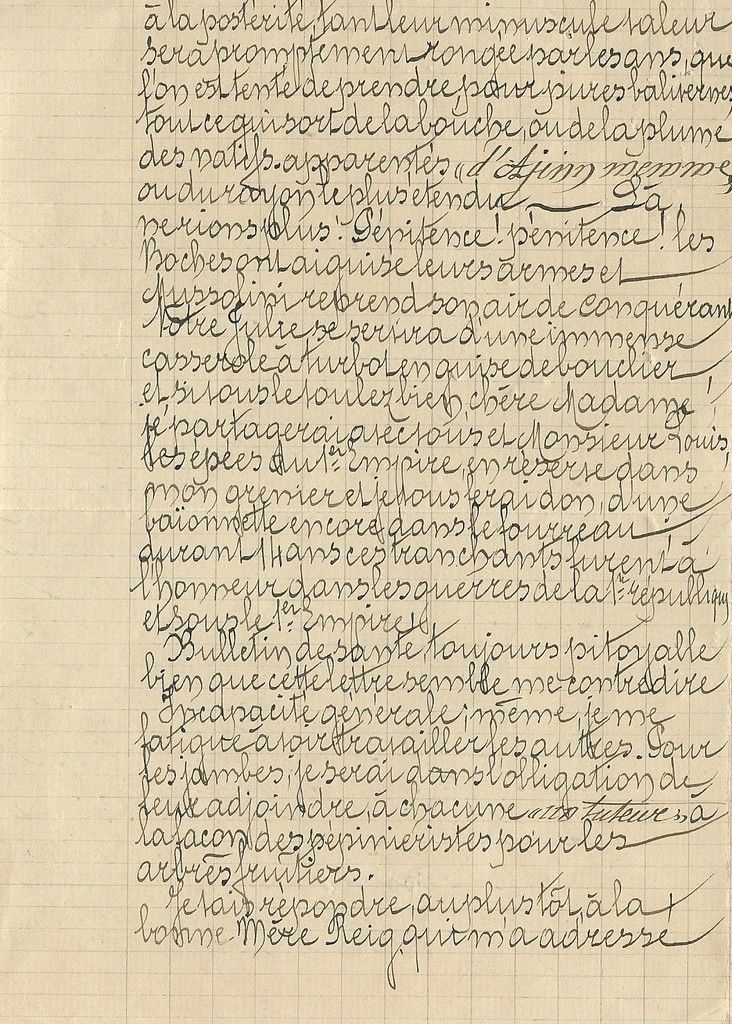 à la postérité, tant leur minuscule valeur
sera promptement rongée par les ans, que
l'on est tenté de prendre, pour pures balivernes,
tout ce qui sort de la bouche, ou de la plume
des natifs apparentés
ou du rayon le plus étendu — Là,
ne rions plus! Pénitence! pénitence! les
Boches ont aiguisé leurs armes et
Mussolini reprend son air de conquérant
Notre Julie se servira d'une immense
casserole à turbot en guise de bouclier
et si vous le voulez bien, chère Madame,
je partagerai avec vous et Monsieur Louis,
les épées du 1er Empire, en réserve dans
mon grenier et je vous ferai don, d'une
baïonnette encore dans le fourreau
durant 14 ans ces tranchants furent à
l'honneur dans les guerres de la 1re république
et sous le 1er Empire
Bulletin de santé, toujours pitoyable
bien que cette lettre semble me contredire
Incapacité générale; même, je me
fatigue à voir travailler les autres. Pour
les jambes, je serai dans l'obligation de
leur adjoindre, à chacune "un tuteur" à
la façon des pépiniéristes pour les
arbres fruitiers.
Je vais répondre, au plus tôt, à la
bonne Mère Reig, qui m'a adressé